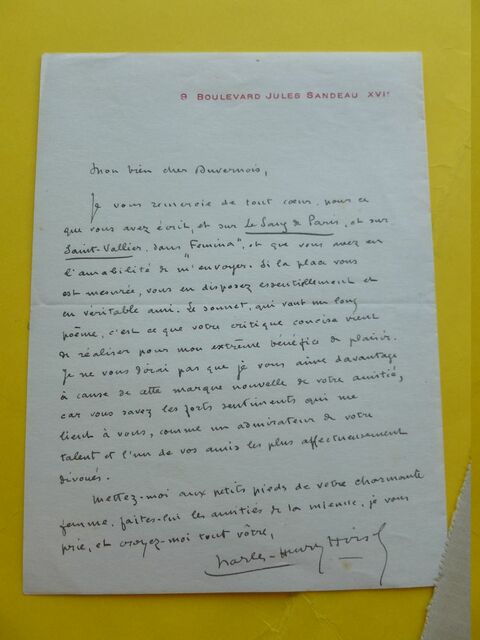 9 BOULEVARD JULES SANDEAU XVIe
Mon bien cher Duvernois,
Je vous remercie de tout cœur, pour ce
que vous avez écrit, et sur Le Sang de Paris, et sur
Saint-Vallier, dans "Femina", et que vous avez eu
l'amabilité de m'envoyer. Si la place vous
est mesurée, vous en disposez essentiellement et
en véritable ami. Le sonnet, qui vaut un long
poème, c'est ce que votre critique concise vient
de réaliser pour mon extrême bénéfice de plaisir.
Je ne vous dirai pas que je vous aime davantage
à cause de cette marque nouvelle de votre amitié,
car vous savez les forts sentiments qui me
lient à vous, comme un admirateur de votre
talent et l'un de vos amis les plus affectueusement
dévoués.
Mettez-moi aux petits pieds de votre charmante
femme, faites-lui les amitiés de la mienne, je vous
prie, et croyez-moi tout vôtre,
Charles-Henry Hirsch